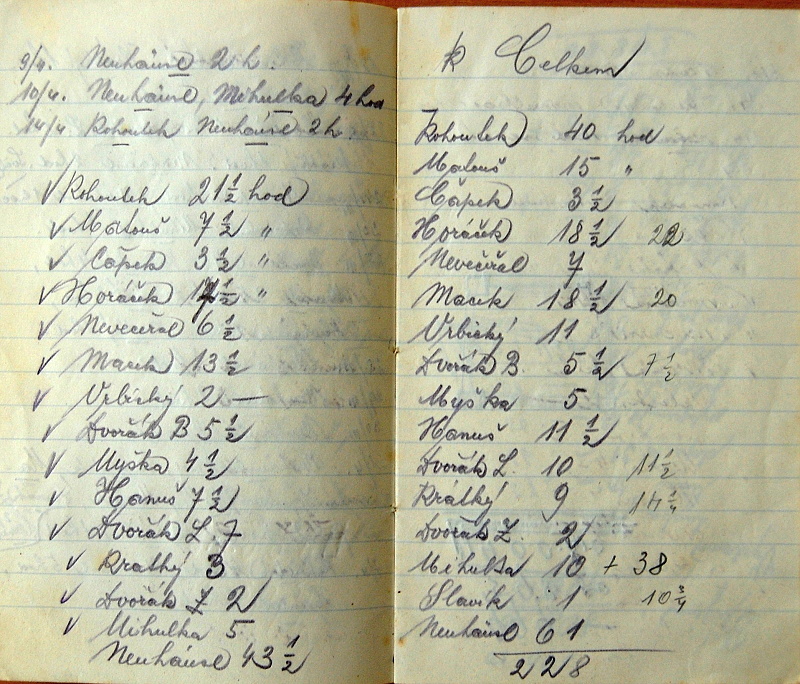 9/4. Neuhäusl 2 h.
10/4. Neuhäusl, Mihulka 4 hod
14/4 Kohoutek Neuhäusl 2 h.
✓ Kohoutek 21 ½ hod
✓ Matouš 7 ½ "
✓ Čápek 3 ½ "
✓ Horáček ½ "
✓ Nevečeřal 6 ½
✓ Macek 13 ½
✓ Vrbický 2 —
✓ Dvořák B 5 ½
✓ Myška 4 ½
✓ Hanuš 7 ½
✓ Dvořák L. 7
✓ Krátký 3
✓ Dvořák Z 2
✓ Mihulka 5
Neuhäusl 43 ½
Celkem
Kohoutek 40 hod
Matouš 15 "
Čápek 3 ½
Horáček 18 ½ 22
Nevečeřal 7
Macek 18 ½ 20
Vrbický 11
Dvořák B 5 ½ 7 ½
Myška 5
Hanuš 11 ½
Dvořák L. 10 11 ½
Krátký 9
Dvořák Z. 2
Mihulka 10 + 38
Slavík 1 10 ¾
Neuhäusl 61
228